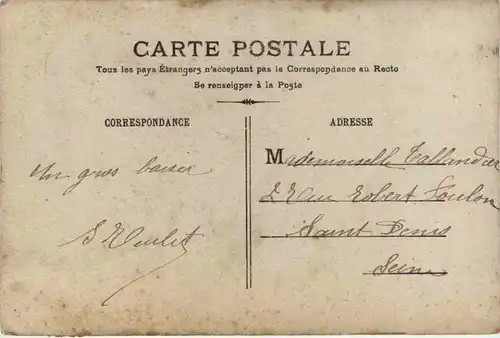 CARTE POSTALE
Tous les pays Étrangers n'acceptant pas la Correspondance au Recto
Se renseigner à la Poste
CORRESPONDANCE
ADRESSE
un gros baiser
Mademoiselle Tallandier
2 Rue Robert
Saint Denis
Seine